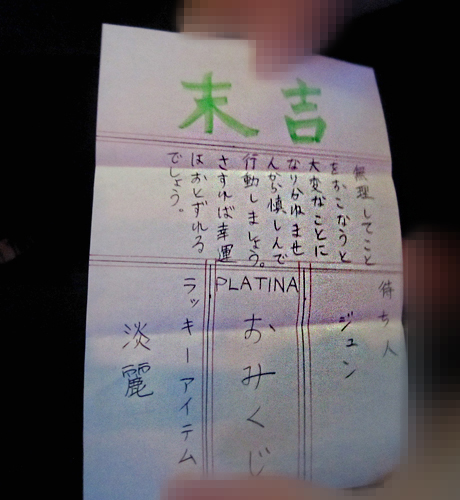 末吉
無理してこと
をおこなうと
大変なことに
なりかねませ
んから慎しんで
行動しましょう。
さすれば幸運
はおとずれる
でしょう。
待ち人
ジュン
PLATINA
おみくじ
ラッキーアイテム
淡麗